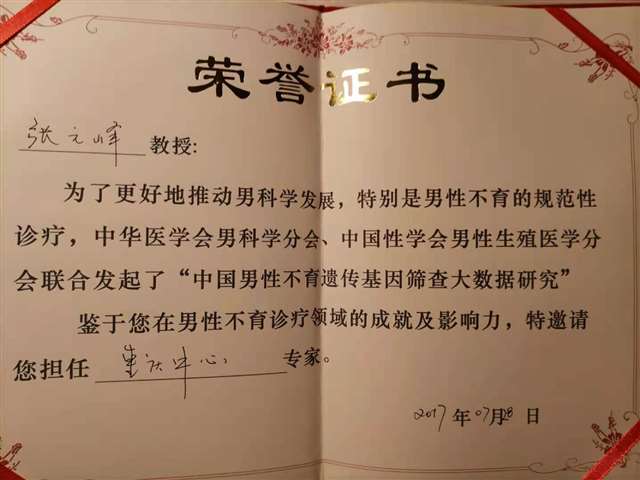 荣誉证书
张元峰 教授:
为了更好地推动男科学发展，特别是男性不育的规范性
诊疗，中华医学会男科学分会、中国性学会男性生殖医学分
会联合发起了“中国男性不育遗传基因筛查大数据研究”
鉴于您在男性不育诊疗领域的成就及影响力，特邀请
您担任 重庆中心 专家。
2017 年 07 月 28 日